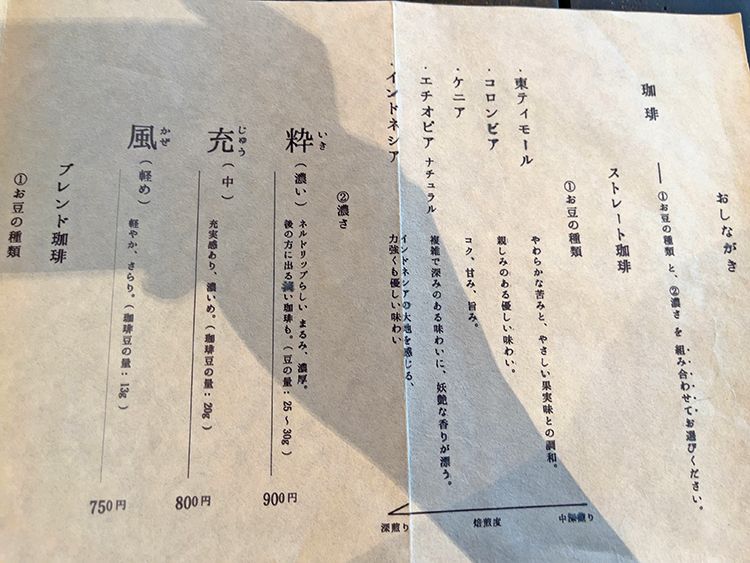 おしながき
珈琲 ― ①お豆の種類 と、②濃さ を 組み合わせてお選びください。
ストレート珈琲
①お豆の種類
・東ティモール やわらかな苦みと、やさしい果実味との調和。
・コロンビア 親しみのある優しい味わい。
・ケニア コク、甘み、旨み。
・エチオピア ナチュラル 複雑で深みのある味わいに、妖艶な香りが漂う。
・インドネシア インドネシアの大地を感じる、
力強くも優しい味わい
中深煎り
焙煎度
深煎り
②濃さ
粋 いき (濃い) ネルドリップらしい まるみ、濃厚。
後の方に出る濃い珈琲も。(豆の量:25~30g) 900円
充 じゅう (中) 充実感あり、濃いめ。(珈琲豆の量:20g) 800円
風 かぜ (軽め) 軽やか、さらり。(珈琲豆の量:13g) 750円
ブレンド珈琲
①お豆の種類